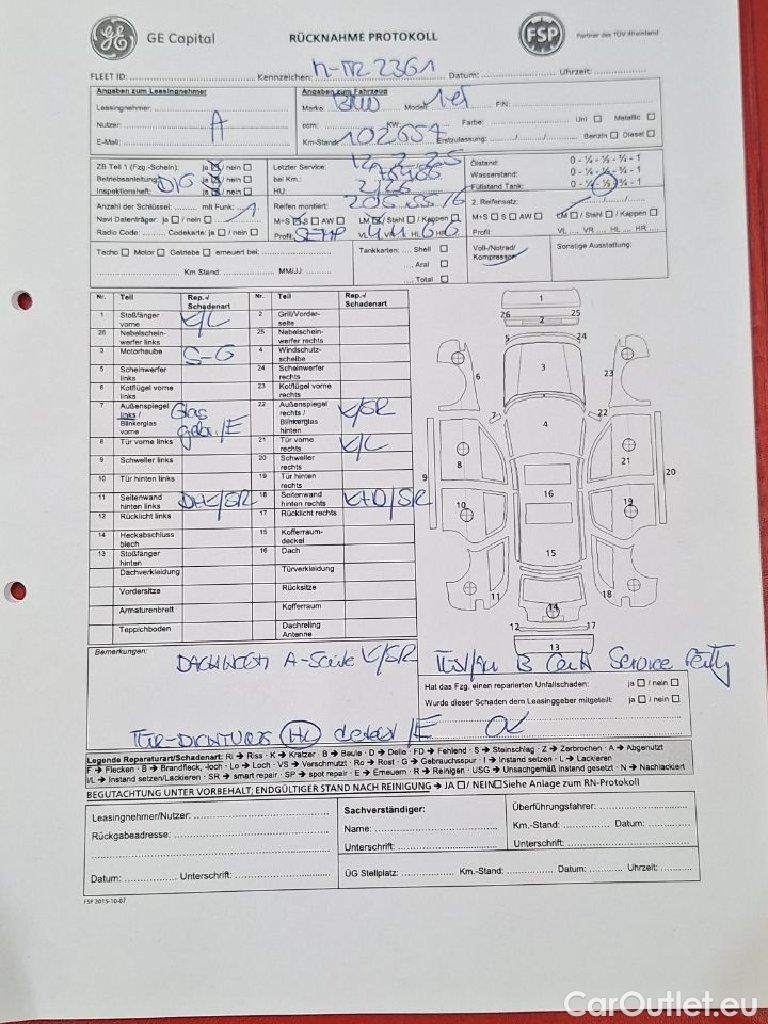 GE Capital
RÜCKNAHME PROTOKOLL
FSP
Partner des TÜV Rheinland
FLEET ID: Kennzeichen: Datum: Uhrzeit:
Angaben zum Leasingnehmer
Leasingnehmer:
Nutzer: A
E-Mail:
Angaben zum Fahrzeug
Marke: BMW Modell: 1er FIN:
ccm: KW: Farbe: Uni Metallic
Km-Stand: 102657 Erstzulassung: / / Benzin Diesel
ZB Teil 1 (Fzg.-Schein): ja / nein
Betriebsanleitung: ja / nein
Inspektionsheft: ja / nein
Letzter Service:
bei Km.:
HU: 2/26
Ölstand: 0 - ¼ - ½ - ¾ - 1
Wasserstand: 0 - ¼ - ½ - ¾ - 1
Füllstand Tank: 0 - ¼ - ½ - ¾ - 1
Anzahl der Schlüssel: mit Funk: 1
Navi Datenträger: ja / nein
Radio Code: Codekarte: ja / nein
Reifen montiert: 205/55/16
M+S S AW LM / Stahl / Kappen
Profil: VL VR HL HR
2. Reifensatz: / /
M+S S AW LM / Stahl / Kappen
Profil: VL VR HL HR
Tacho Motor Getriebe erneuert bei:
Km Stand: MM/JJ:
Tankkarten: Shell
Aral
Total
Voll-/Notrad/
Kompressor
Sonstige Ausstattung:
Nr. Teil Rep.-/ Schadenart Nr. Teil Rep.-/ Schadenart
1 Stoßfänger vorne K/L 2 Grill/Vorderseite
26 Nebelscheinwerfer links 25 Nebelscheinwerfer rechts
3 Motorhaube S-G 4 Windschutzscheibe
5 Scheinwerfer links 24 Scheinwerfer rechts
6 Kotflügel vorne links 23 Kotflügel vorne rechts
7 Außenspiegel links / Blinkerglas vorne Glas /E 22 Außenspiegel rechts / Blinkerglas hinten K/SR
8 Tür vorne links 21 Tür vorne rechts K/L
9 Schweller links 20 Schweller rechts
10 Tür hinten links 19 Tür hinten rechts
11 Seitenwand hinten links 18 Seitenwand hinten rechts K+D/SR
12 Rücklicht links 17 Rücklicht rechts
14 Heckabschlussblech 15 Kofferraumdeckel
13 Stoßfänger hinten 16 Dach
Dachverkleidung Türverkleidung
Vordersitze Rücksitze
Armaturenbrett Kofferraum
Teppichboden Dachreling Antenne
1
26 25
2
5 24
3
6 23
7 22
4
8 21
9 20
16
10 19
15
11 18
14
12 17
13
Bemerkungen:
A-Säule K/SR
Hat das Fzg. einen reparierten Unfallschaden: ja / nein
Wurde dieser Schaden dem Leasinggeber mitgeteilt: ja / nein
TÜR-DICHTUNG HL defekt /E
Legende Reparaturart/Schadenart: Ri → Riss · K → Kratzer · B → Beule · D → Delle · FD → Fehlend · S → Steinschlag · Z → Zerbrochen · A → Abgenutzt
F → Flecken · B → Brandfleck, -loch · Lo → Loch · VS → Verschmutzt · Ro → Rost · G → Gebrauchsspur · I → Instand setzen · L → Lackieren
I/L → Instand setzen/Lackieren · SR → smart repair · SP → spot repair · E → Erneuern · R → Reinigen · USG → Unsachgemäß instand gesetzt · N → Nachlackiert
BEGUTACHTUNG UNTER VORBEHALT; ENDGÜLTIGER STAND NACH REINIGUNG → JA / NEIN Siehe Anlage zum RN-Protokoll
Leasingnehmer/Nutzer:
Rückgabeadresse:
Datum: Unterschrift:
Sachverständiger:
Name:
Unterschrift:
Überführungsfahrer:
Km.-Stand: Datum:
Unterschrift:
ÜG Stellplatz: Km.-Stand: Datum: Uhrzeit:
FSP 2015-10-07
CarOutlet.eu